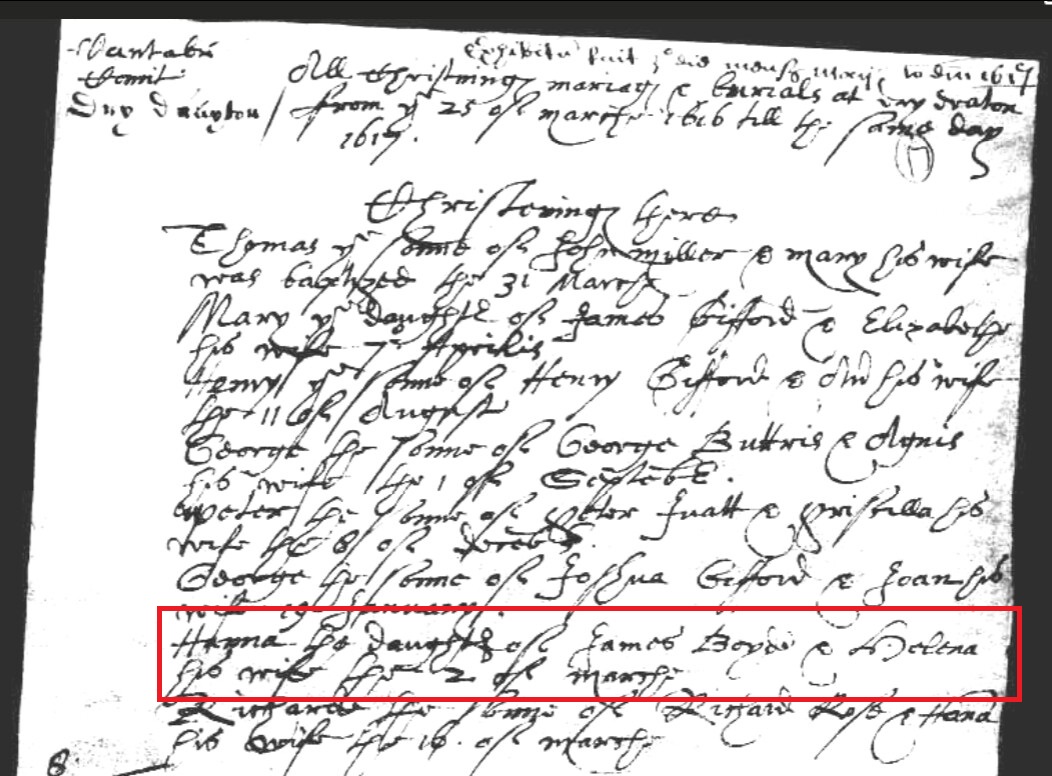 Cantabri
Comit
Dry Drayton
Exhibitu fuit die mensis Maij Ao dni 1617
All Christnings mariag & burials at dry draton
from ye 25 of marche 1616 till the same day
1617.
Christenings here
Thomas ye sonne of John Miller & mary his wife
was baptized the 31 Marche
Mary ye daughter of James Gifford & Elizabethe
his wife 7 Aprilis
Henry ye sonne of Henry Gifford & his wife
the 11 of August
George the sonne of George Buttris & Agnis
his wife the 1 of September.
Peter the sonne of Peter Juatt & Priscilla his
wife the 8 of Deceb.
George the sonne of Joshua Gifford & Joan his
wife 19 January.
Hanna the daughter of James Boyde & Helena
his wife the 2 of marche
Richarde the sonne of Richard Rose & Hana
his wife the 16. of marche
8.